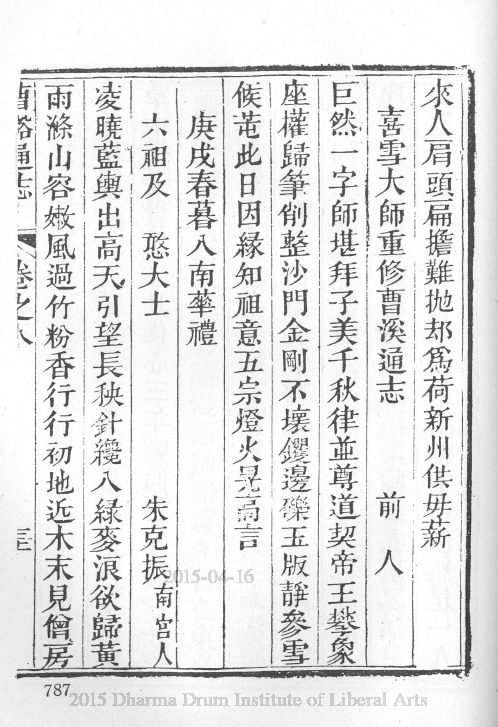 來人肩頭扁擔難抛却爲荷新州供母薪
喜雪大師重修曹溪通志 前人
巨然一字師堪拜子美千秋律並尊道契帝王攀象
座權歸筆削整沙門金剛不壞鑺邊礫玉版靜參雪
候芚此日因緣知祖意五宗燈火晃高言
庚戌春暮入南華禮
六祖及 憨大士 朱克振南宮人
凌曉藍輿出高天引望長秧針纔入綠麥浪欲歸黃
雨滌山容嫩風過竹粉香行行初地近木末見僧房
曹谿通志 卷之八
787
2015-04-16
2015 Dharma Drum Institute of Liberal Arts